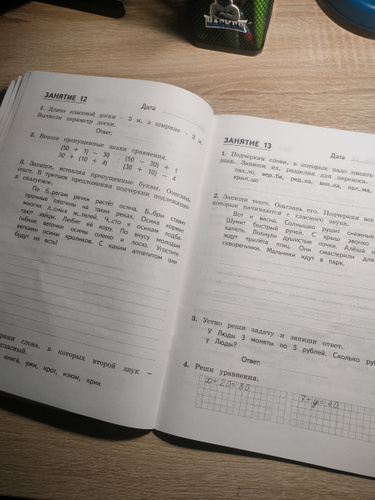 ЗАНЯТИЕ 12
Дата
1. Длина классной доски – 5 м, а ширина – 2 м.
Вычисли периметр доски.
Ответ:
2. Вставь пропущенные знаки сравнения.
(50 + 1) – 30 (50 – 30) + 1
30 + (10 + 4) (30 + 10) – 4
3. Запиши, вставляя пропущенные буквы. Озаглавь
текст. В третьем предложении подчеркни подлежащее
и сказуемое.
По б..регам речки растёт осина. Б..бры ставят
прочные плотины на таких реках. Осина кормит
многих л..сных ж..телей. Ч..сто к осинам подбе-
гают зайцы. Любят её кору. По вкусу молодые
гибкие веточки осины оленю и лосю. Угостите
ветками осины кроликов. С каким аппетитом они
будут их есть!
слова, в которых второй звук –
гласный.
книга, ужи, крот, изюм, крик
ЗАНЯТИЕ 13
Дата
1. Подчеркни слова, в которых надо писать
Запиши их, разделяя для переноса.
2. Запиши текст. Озаглавь его. Подчеркни все
которые начинаются с гласного звука.
Вот и весна. Солнышко рушит снежные
Шумит быстрый ручей. С крыш звонко
капель. Лопнули душистые почки. Алёша и
ждут прилёта птиц. Они смастерили для
скворечники. Мальчики идут в парк.
3. Устно реши задачу и запиши ответ.
У Люды 3 монеты по 5 рублей. Сколько руб
у Люды?
Ответ:
4. Реши уравнения.
x + 20 = 80
7 + y = 40